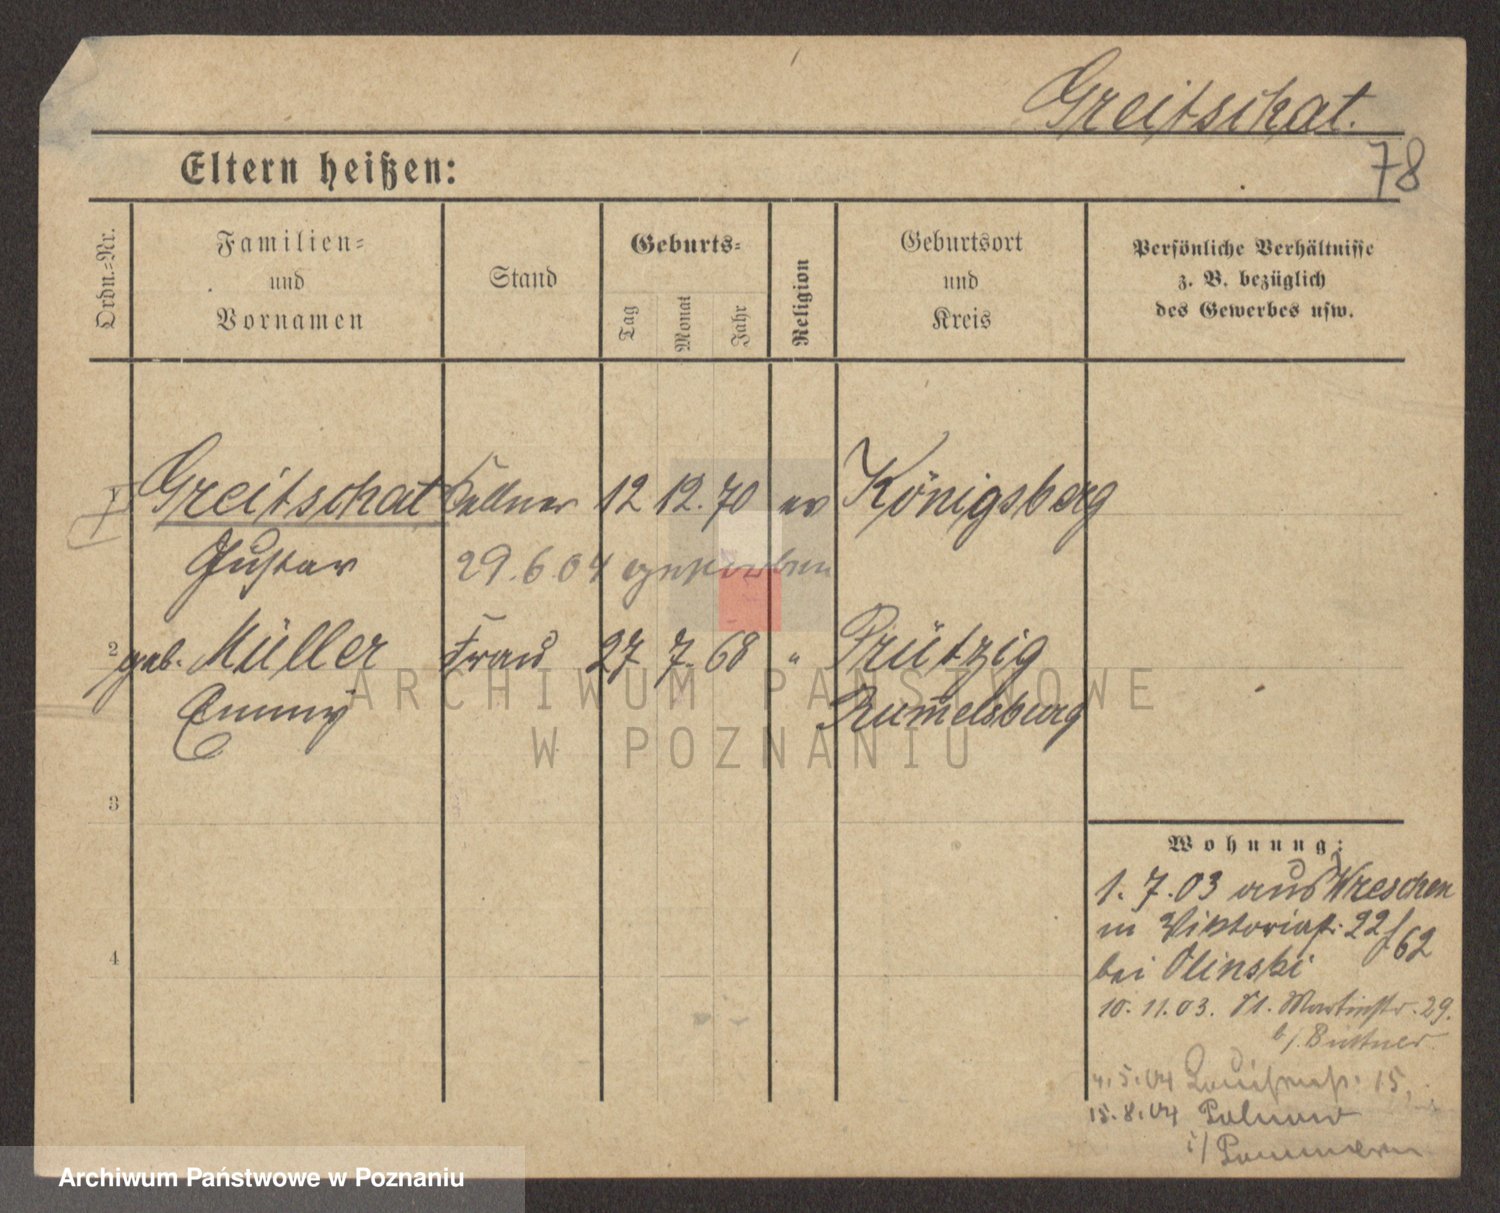 Greitschat.
78
Eltern heißen:
Ordn.-Nr.
Familien-
und
Vornamen
Stand
Geburts-
Tag
Monat
Jahr
Religion
Geburtsort
und
Kreis
Persönliche Verhältnisse
z. B. bezüglich
des Gewerbes usw.
1 Greitschat Kellner 12 12. 70 ev Königsberg
Gustav 29.6.04 gestorben
2 geb. Müller Frau 27 7. 68 " Prützig
Emmy Rummelsburg
3
4
Wohnung:
1. 7. 03 aus Wreschen
in Viktoriastr. 22/62
bei Olinski
10. 11. 03. St. Martinstr. 29.
b/. Büttner
4.5.04 Louisenstr. 15,
15.8.04 Polnow
i/ Pommern
ARCHIWUM PAŃSTWOWE
W POZNANIU
Archiwum Państwowe w Poznaniu